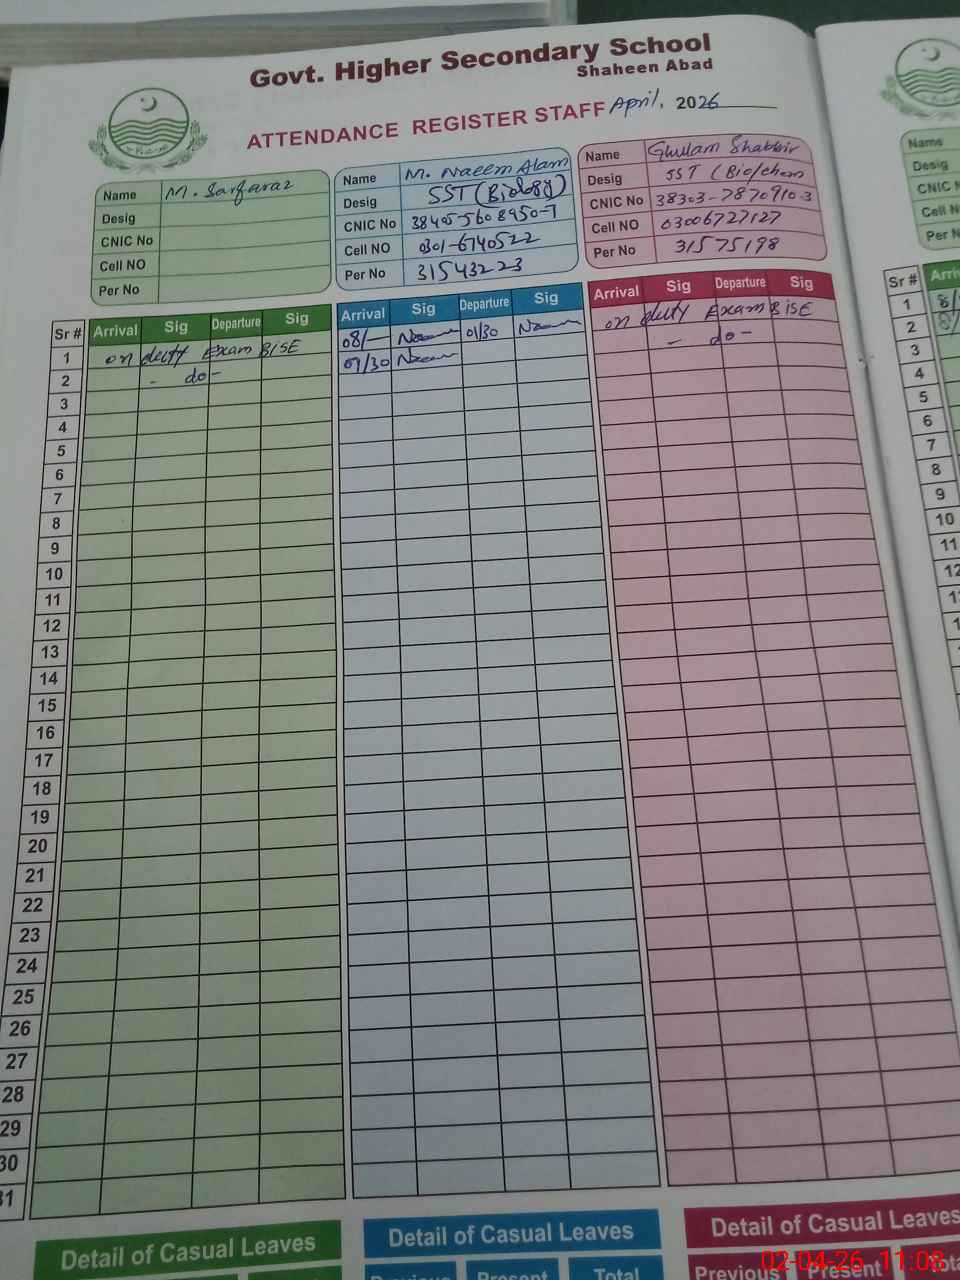 Govt. Higher Secondary School
Shaheen Abad
ATTENDANCE REGISTER STAFF April. 2026
Name M. Sarfaraz
Desig
CNIC No
Cell NO
Per No
Name M. Naeem Alam
Desig SST (Biology)
CNIC No 38405-5608950-7
Cell NO 0301-6740522
Per No 31543223
Name Ghulam Shabbir
Desig SST (Bio/chem
CNIC No 38303-7870910-3
Cell NO 03006727127
Per No 31575198
Name
Desig
CNIC N
Cell N
Per N
Sr # Arrival Sig Departure Sig Arrival Sig Departure Sig Arrival Sig Departure Sig Sr # Arri
1 on duty Exam BISE 08/— 01/30 on duty Exam BISE 1 8/
2 - do - 07/30 - do - 2
3 3
4 4
5 5
6 6
7 7
8 8
9 9
10 10
11 11
12 12
13
14
15
16
17
18
19
20
21
22
23
24
25
26
27
28
29
30
31
Detail of Casual Leaves Detail of Casual Leaves Detail of Casual Leaves
Previous Present Total Previous Present Total
02-04-26 11:08